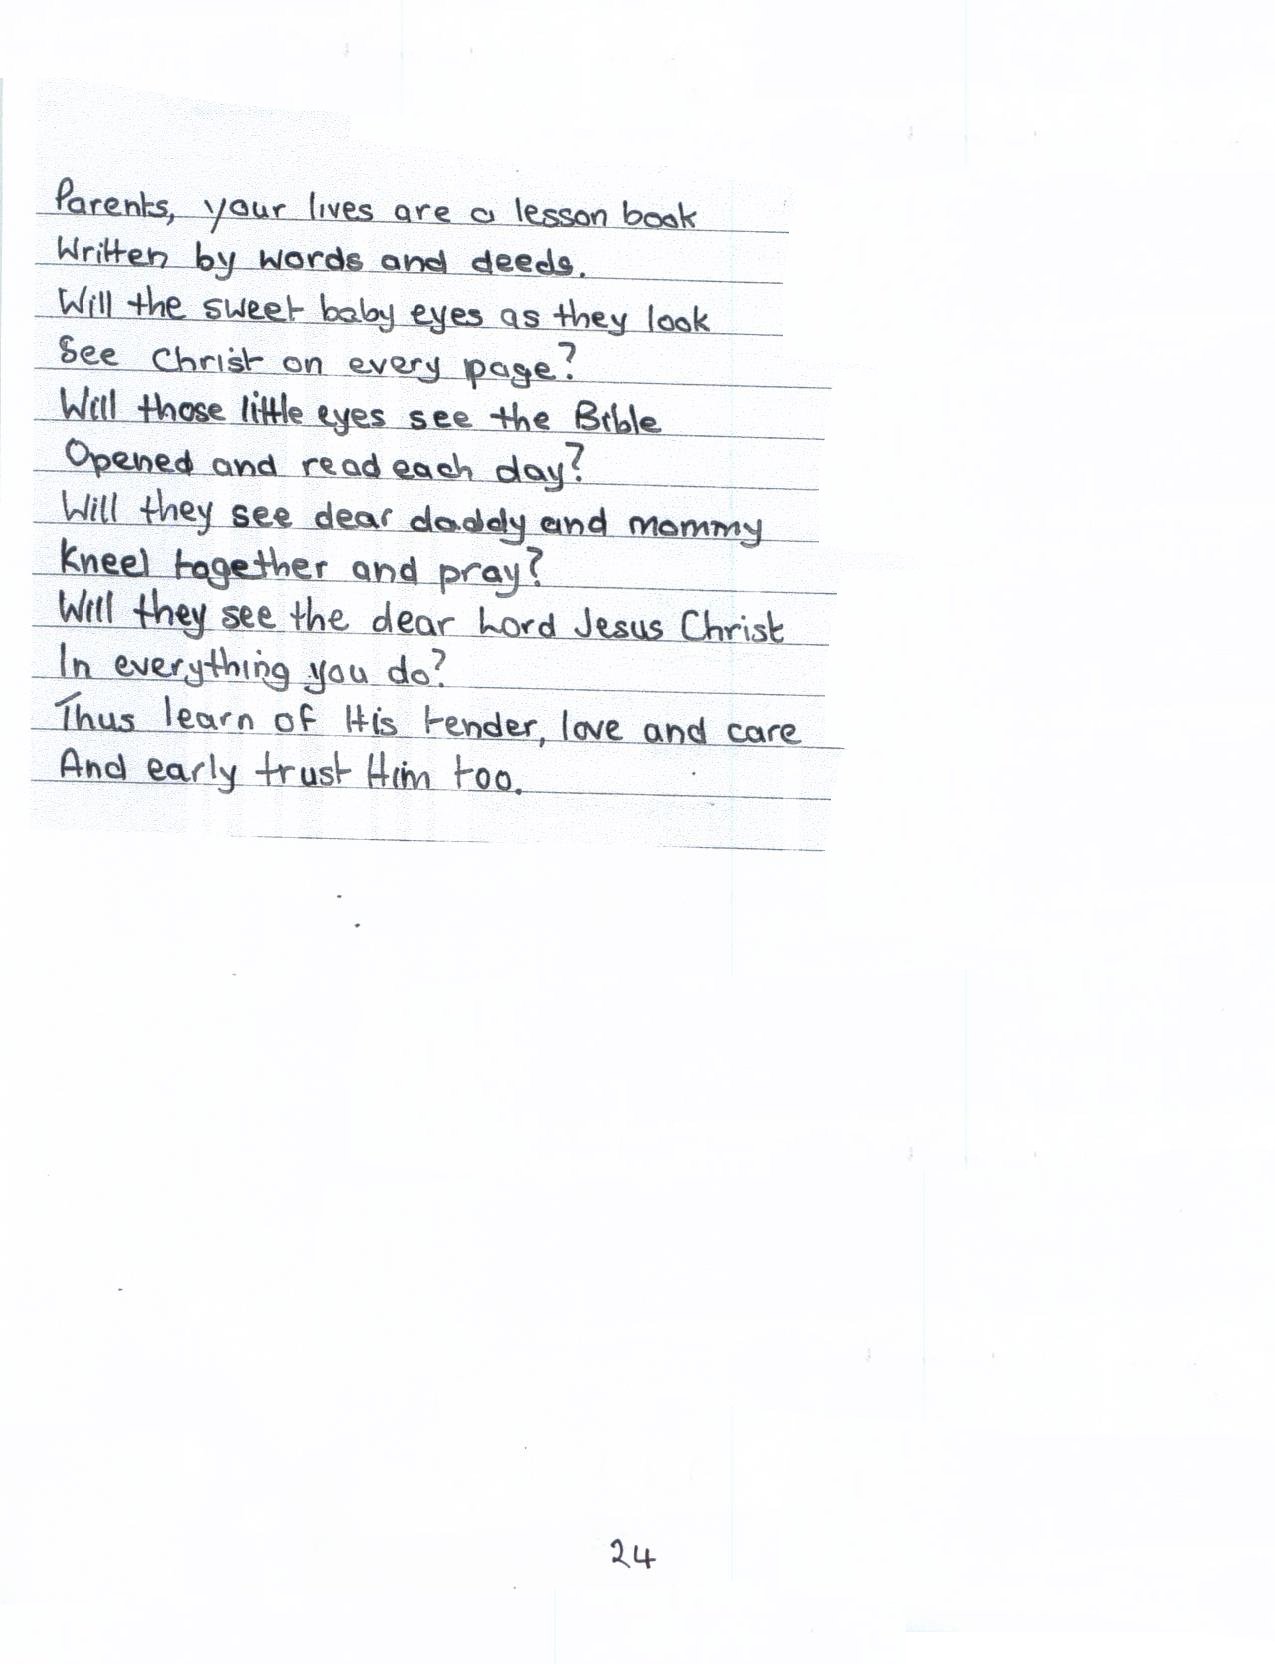 Parents, your lives are a lesson book
Written by words and deeds.
Will the sweet baby eyes as they look
See Christ on every page?
Will those little eyes see the Bible
Opened and read each day?
Will they see dear daddy and mommy
Kneel together and pray?
Will they see the dear Lord Jesus Christ
In everything you do?
Thus learn of His tender, love and care
And early trust Him too.
24